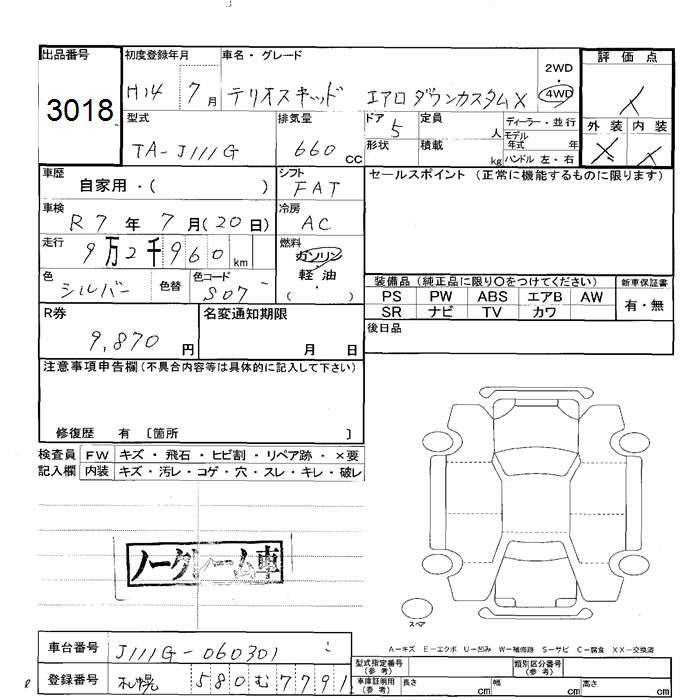 出品番号
3018
初度登録年月
H14 7月
車名・グレード
テリオスキッド エアロダウンカスタムX
2WD
・
4WD
評価点
外装 内装
型式
TA-J111G
排気量
660 cc
ドア
5
形状
定員
人
積載
kg
ディーラー・並行
モデル年式 年
ハンドル 左・右
車歴
自家用・( )
シフト
FAT
セールスポイント (正常に機能するものに限ります)
車検
R7年 7月(20日)
冷房
AC
走行
9万2千960km
燃料
ガソリン
・
軽油
( )
色
シルバー
色替
色コード
S07
装備品 (純正品に限り○をつけてください)
新車保証書
PS PW ABS エアB AW
SR ナビ TV カワ
有・無
R券
9,870円
名変通知期限
月 日
後日品
注意事項申告欄 (不具合内容等は具体的に記入して下さい)
修復歴 有 〔箇所 〕
検査員 FW キズ・飛石・ヒビ割・リペア跡・×要
記入欄 内装 キズ・汚レ・コゲ・穴・スレ・キレ・破レ
ノークレーム車
スペア
A-キズ E-エクボ U-凹み W-補修跡 S-サビ C-腐食 XX-交換済
車台番号
J111G-060301
登録番号
札幌 580 む 7791
型式指定番号
(参考)
類別区分番号
(参考)
車庫証明用
(参考)
長さ cm 幅 cm 高さ cm